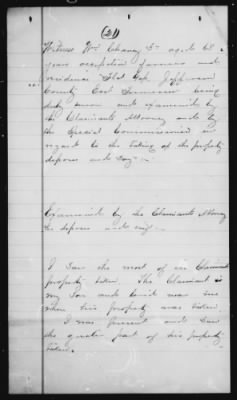 (21)
Witness Wm Chaney Sr aged 68
years occupation farmer and
residence Flat Gap Jefferson
County East Tennessee being
duly sworn and examined by
the Claimants Attorney and by
the Special Commissioner in
regard to the taking of the property
deposes and says
Examined by the Claimants Attorney
he deposes and says
I saw the most of Claimants
property taken. The Claimant is
my Son and lived near me
when his property was taken.
I was present and saw
the greater part of his property
taken.